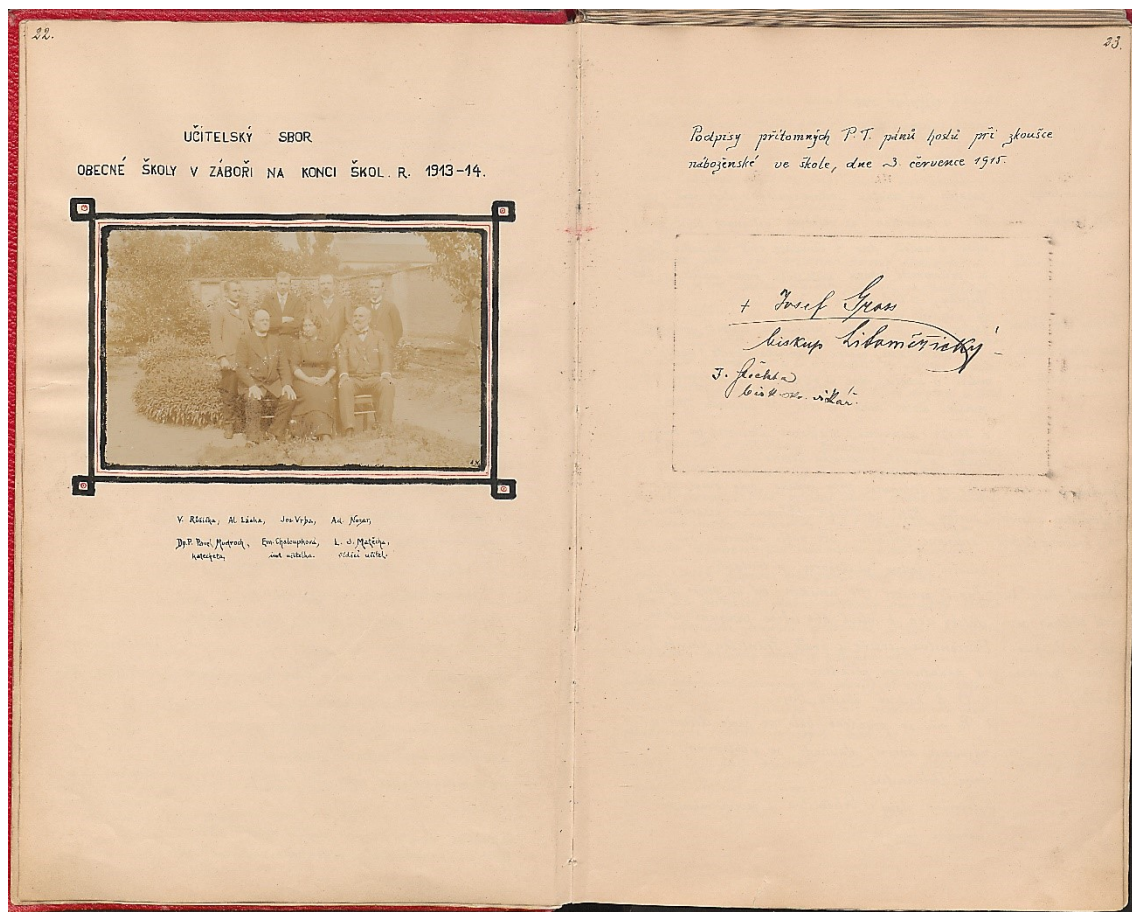 22.
UČITELSKÝ SBOR
OBECNÉ ŠKOLY V ZÁBOŘI NA KONCI ŠKOL. R. 1913-14.
V. Růžička, Al. Láska, Jos. Vrba, Ad.
Dp. P. Pavel Mudroch, Em. Chaloupková, L. J. Matějka,
katecheta, ind. učitelka. řídící učitel.
23.
Podpisy přítomných P. T. pánů hostů při zkoušce
náboženské ve škole, dne 3. července 1915.
+ Josef Gross
biskup Litoměřický
J.
bisk. okr. vikář.